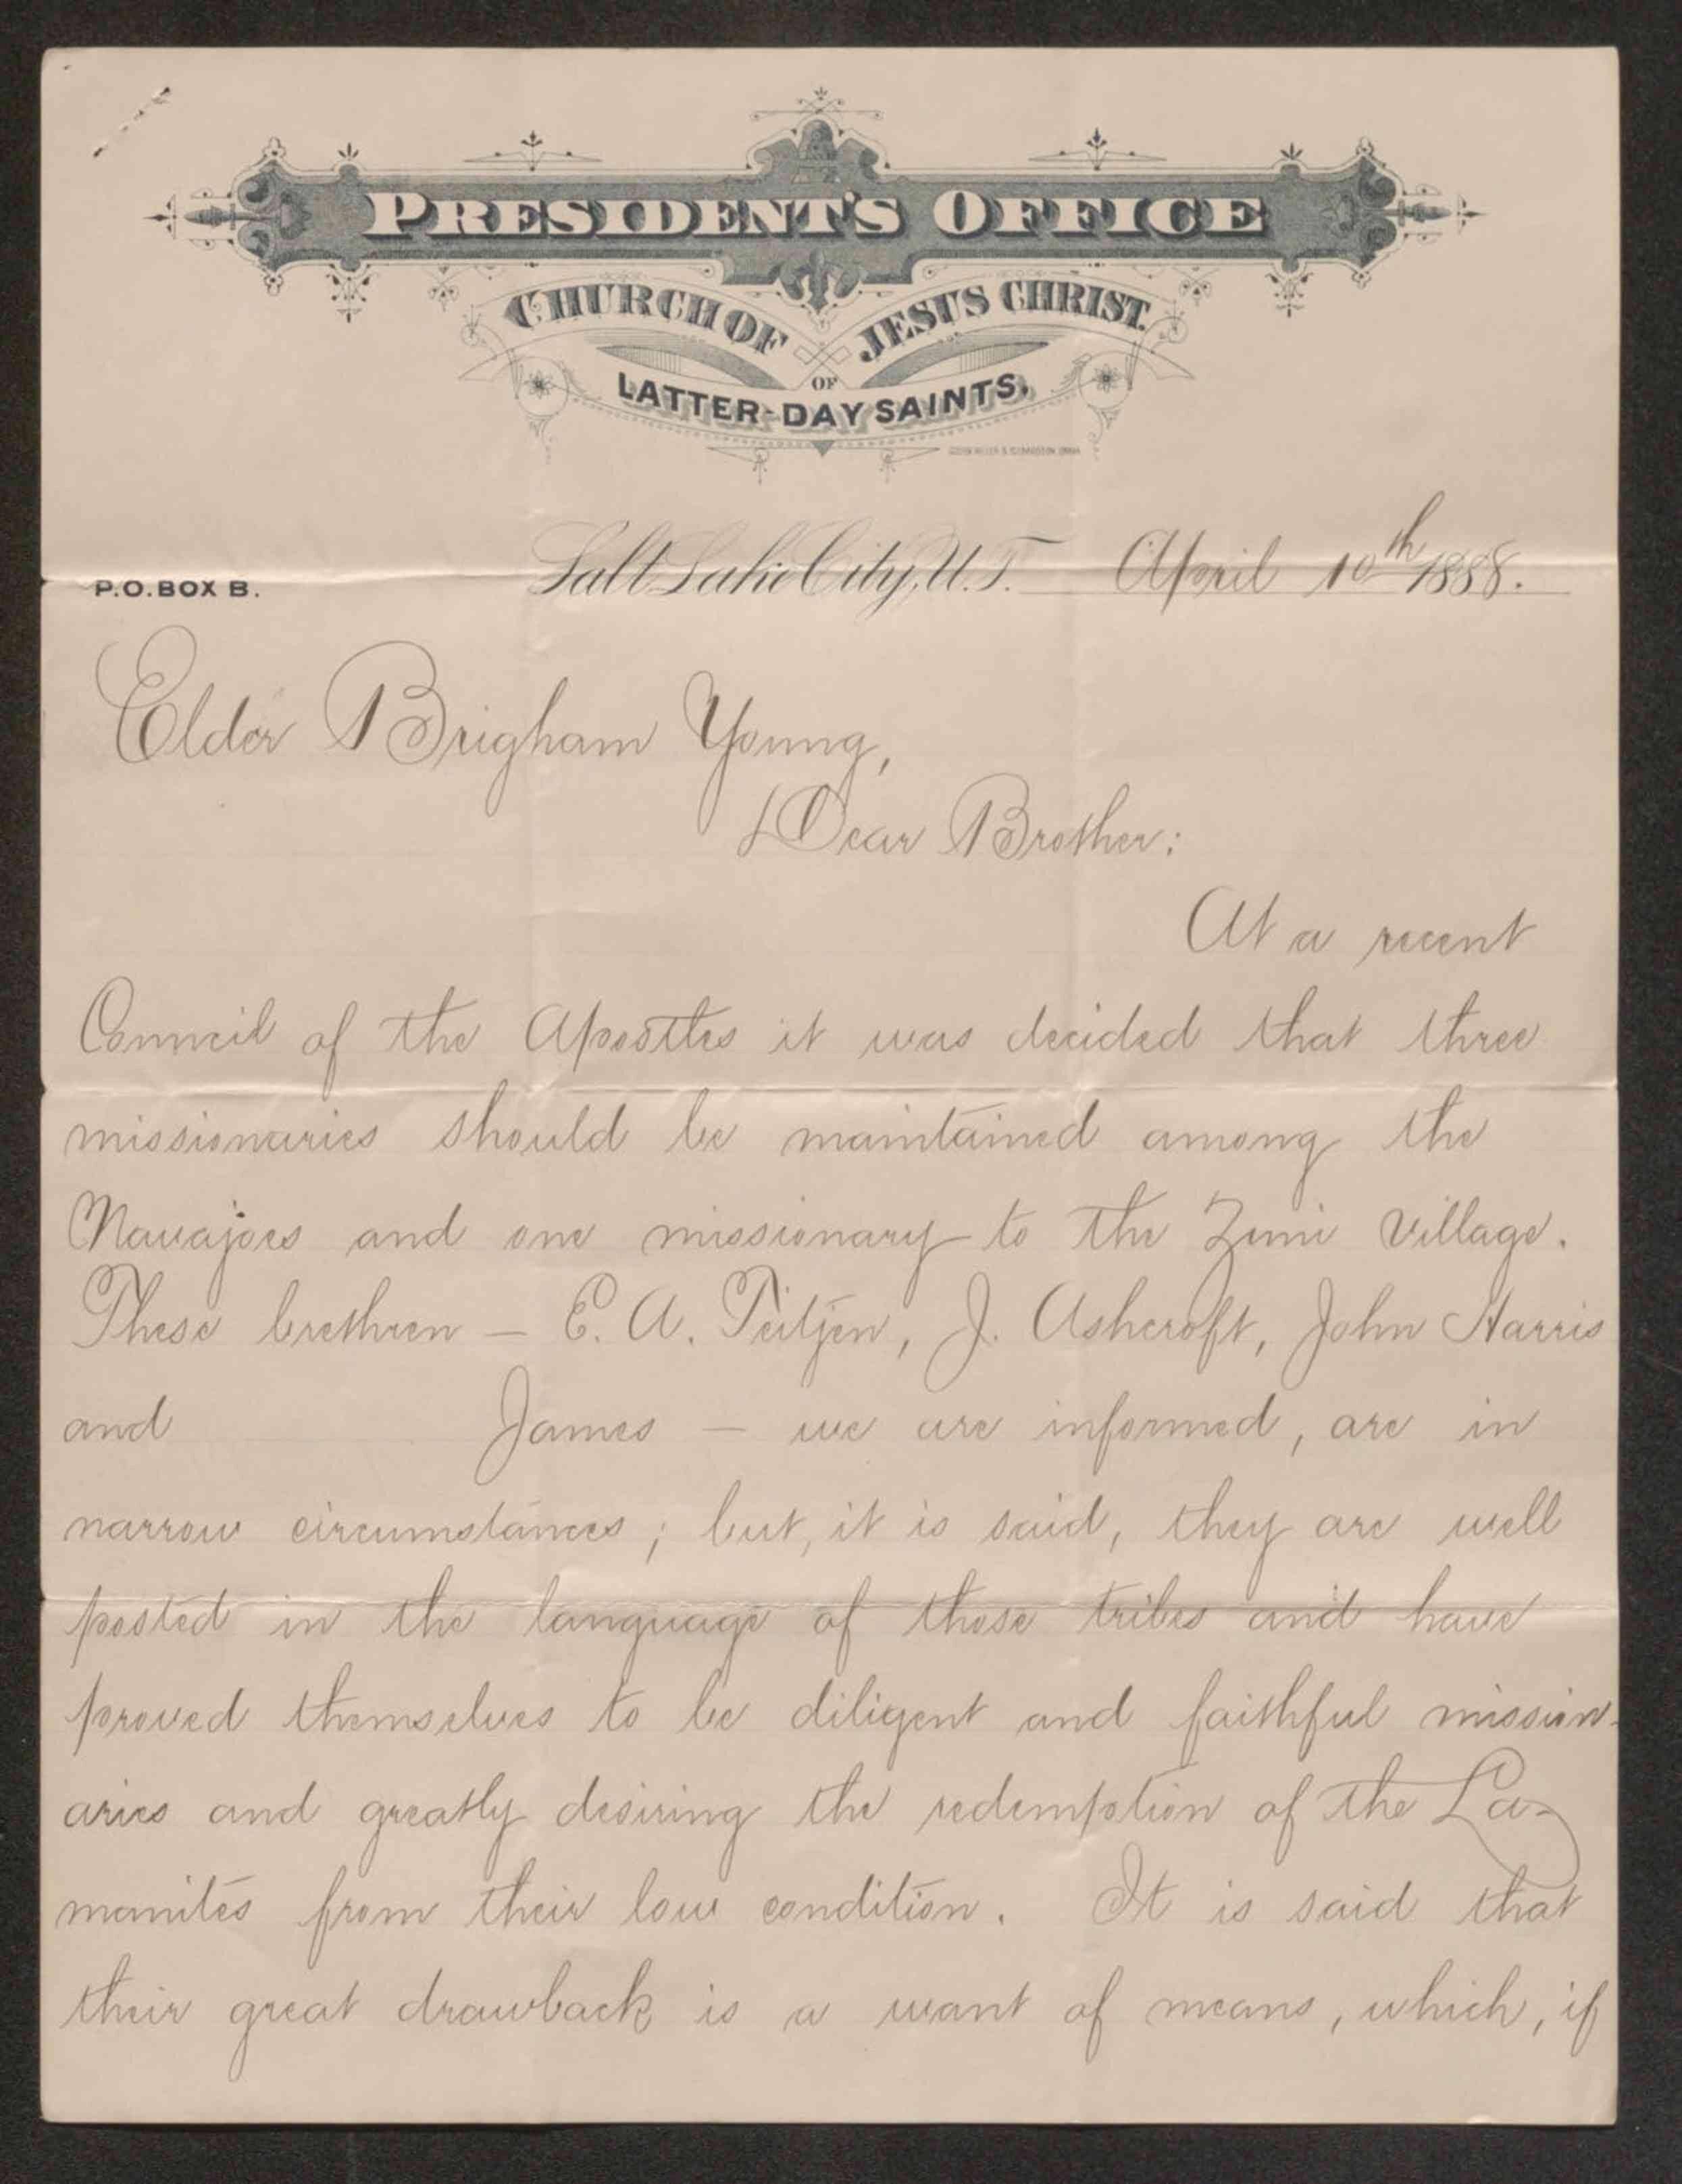 PRESIDENT'S OFFICE
CHURCH OF JESUS CHRIST
OF
LATTER-DAY SAINTS.
P.O. BOX B.
Salt Lake City, U.T. April 10th 1888.
Elder Brigham Young,
Dear Brother:
At a recent
Council of the Apostles it was decided that three
missionaries should be maintained among the
Navajoes and one missionary to the Zuni Village.
These brethren — E. A. Teitjen, J. Ashcroft, John Harris
and James — we are informed, are in
narrow circumstances; but, it is said, they are well
posted in the language of those tribes and have
proved themselves to be diligent and faithful mission-
aries and greatly desiring the redemption of the La-
manites from their low condition. It is said that
their great drawback is a want of means, which, if